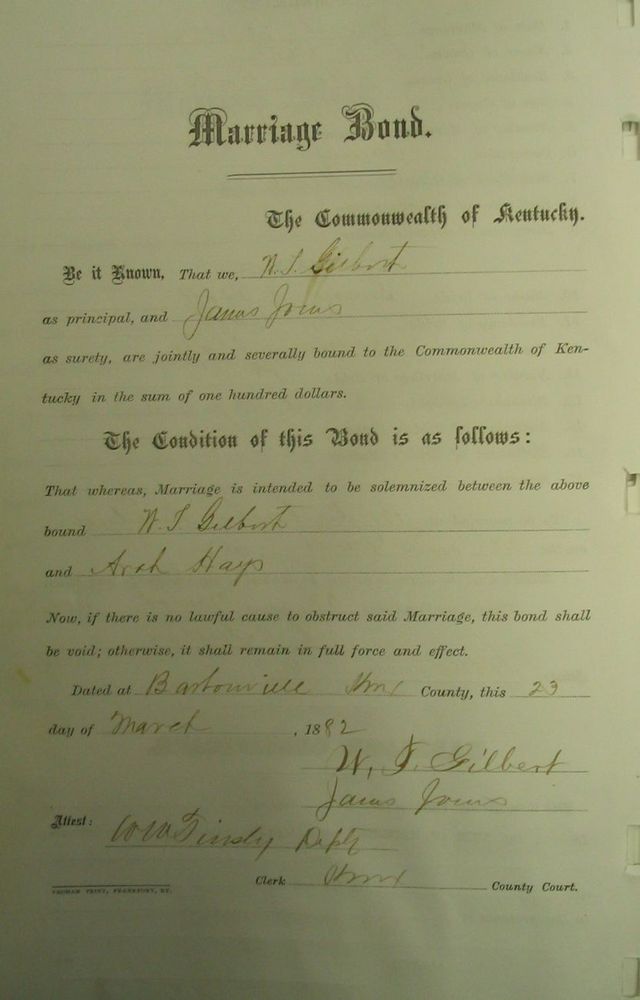 Marriage Bond.
The Commonwealth of Kentucky.
Be it Known, That we, W. T. Gilbert
as principal, and James Jones
as surety, are jointly and severally bound to the Commonwealth of Ken-
tucky in the sum of one hundred dollars.
The Condition of this Bond is as follows:
That whereas, Marriage is intended to be solemnized between the above
bound W. T. Gilbert
and Hays
Now, if there is no lawful cause to obstruct said Marriage, this bond shall
be void; otherwise, it shall remain in full force and effect.
Dated at Knox County, this 23
day of March, 1882
W. T. Gilbert
James Jones
Attest: Depty
Clerk Knox County Court.
YEOMAN PRINT, FRANKFORT, KY.